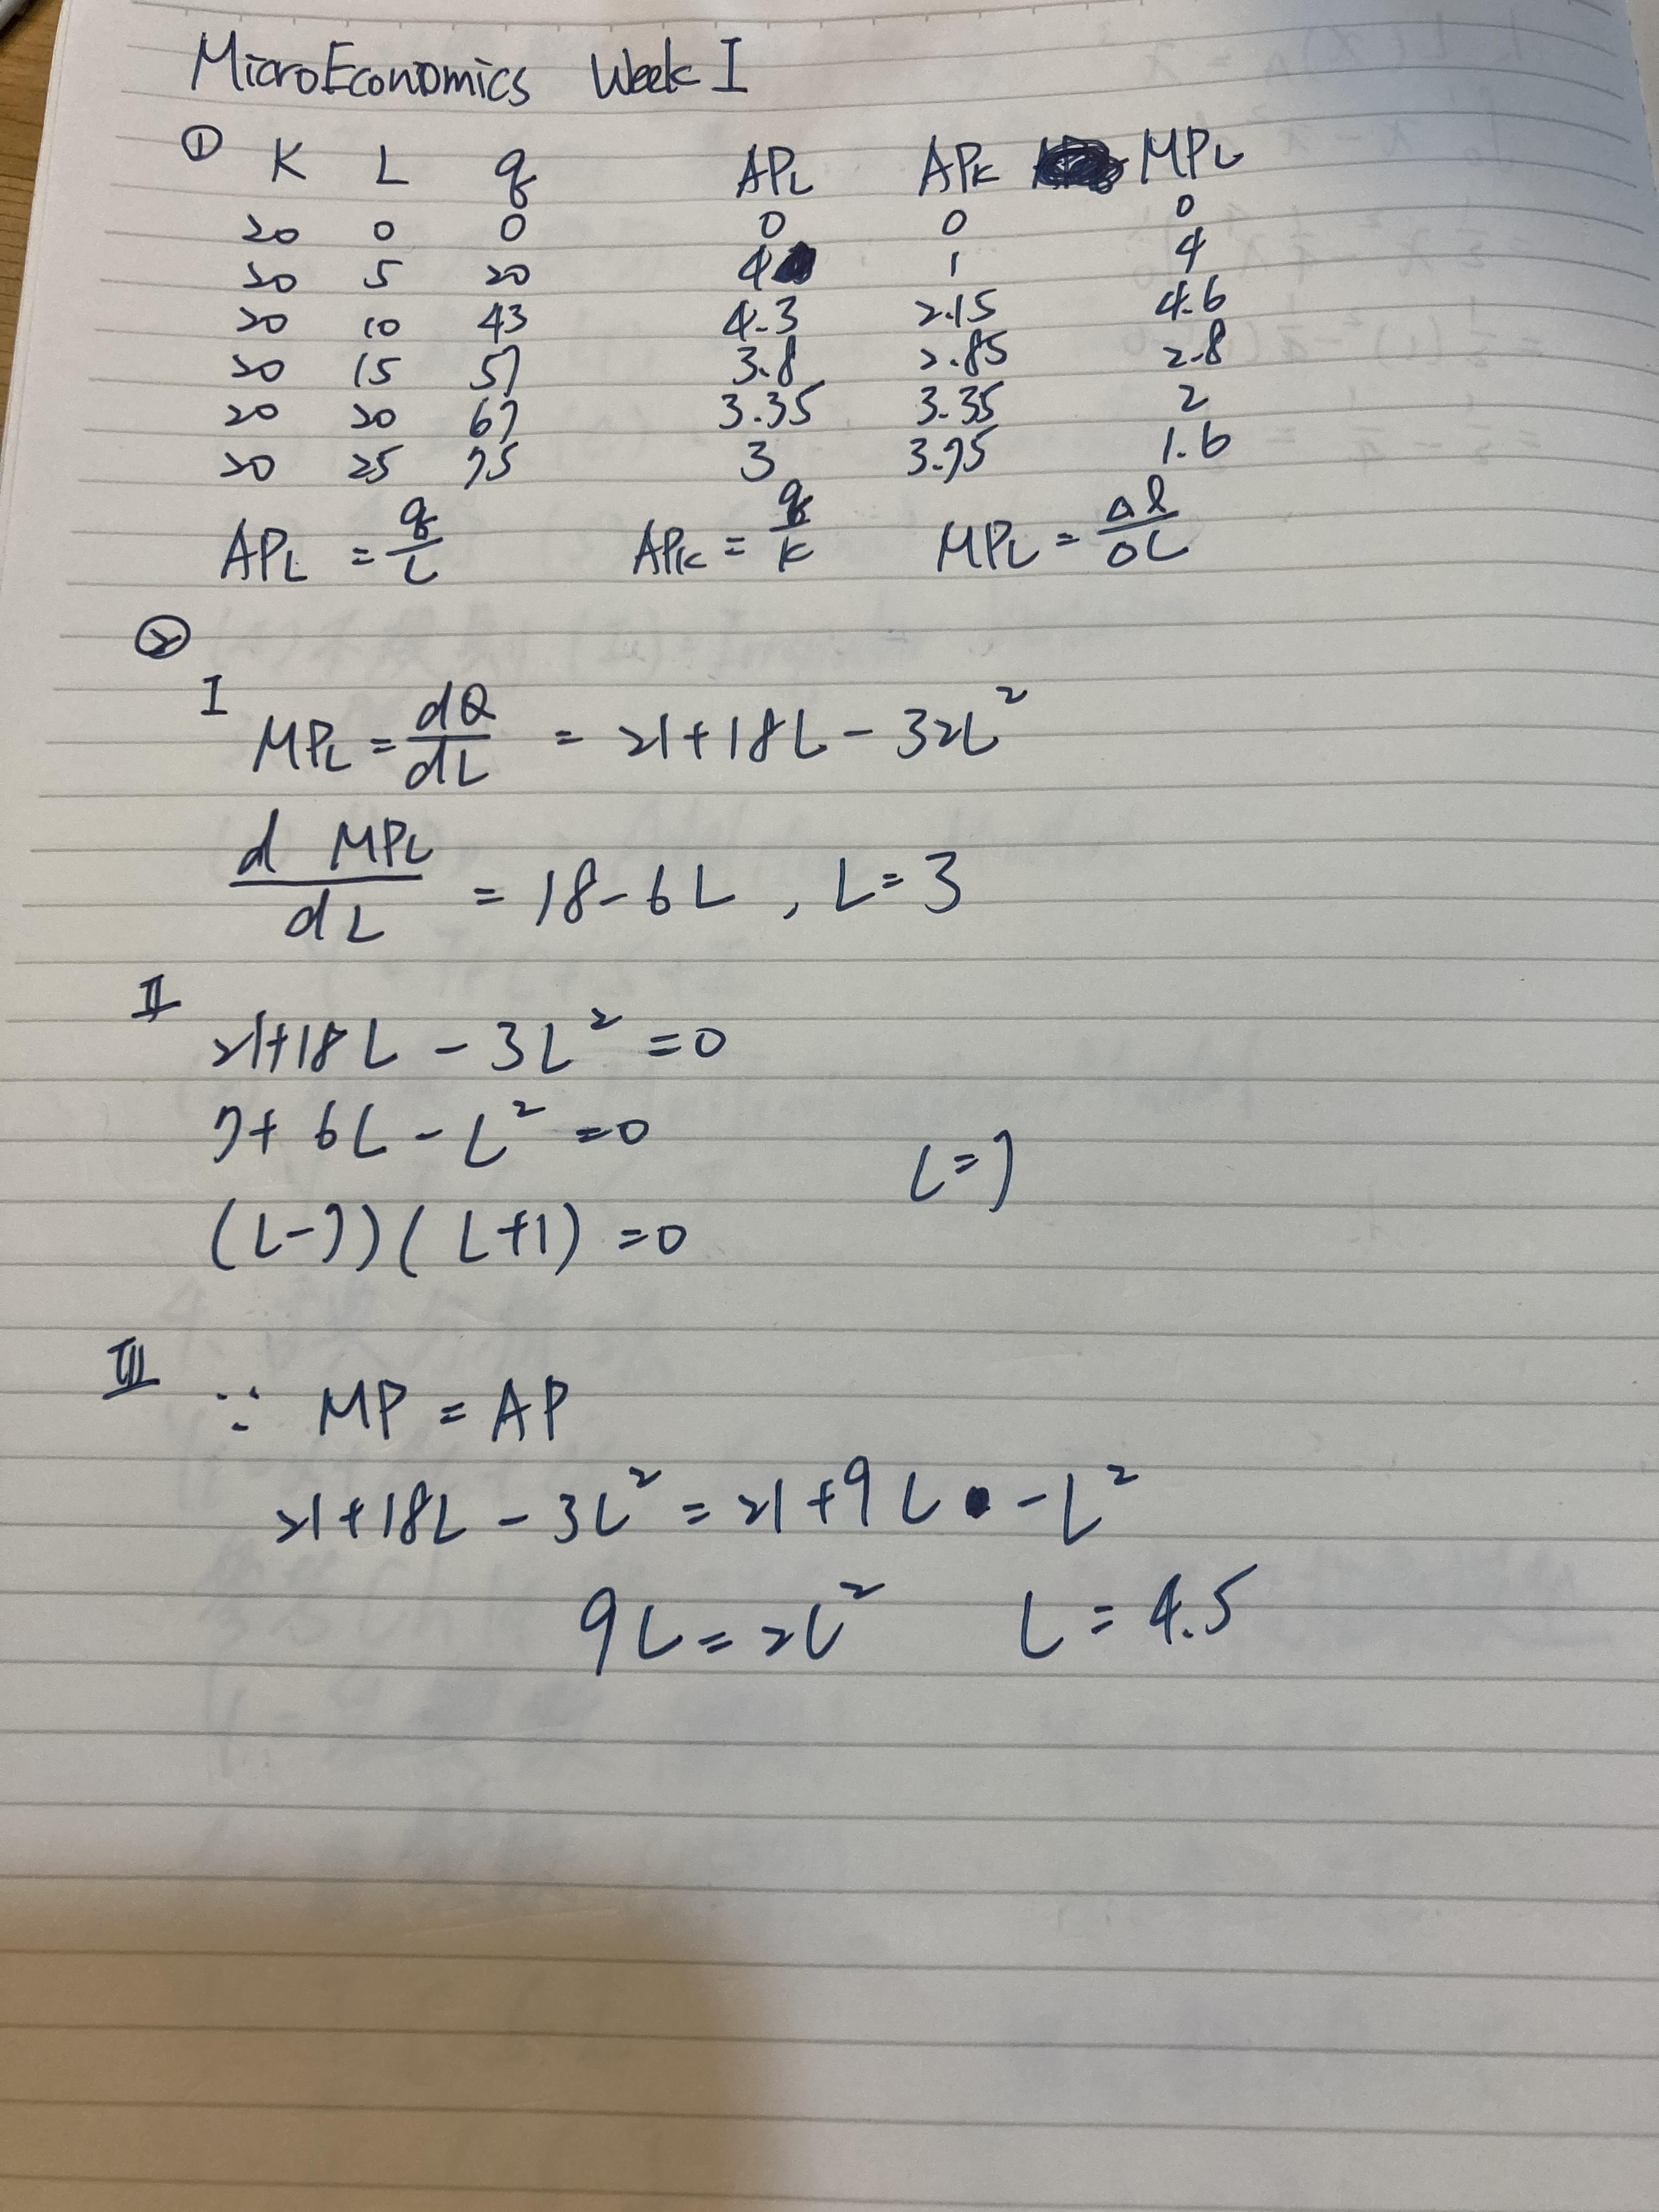 MicroEconomics Week I
① K L q APL APK MPL
20 0 0 0 0 0
20 5 20 4 1 4
20 10 43 4.3 2.15 4.6
20 15 57 3.8 2.85 2.8
20 20 67 3.35 3.35 2
20 25 75 3 3.75 1.6
APL = q/L APK = q/K MPL = Δq/ΔL
②
I MPL = dQ/dL = 21+18L - 32L²
d MPL/dL = 18-6L , L=3
II
21+18L - 3L² =0
7+ 6L - L² =0
L=7
(L-7)(L+1) =0
III ∵ MP = AP
21+18L - 3L² = 21+9L - L²
9L=2L² L=4.5